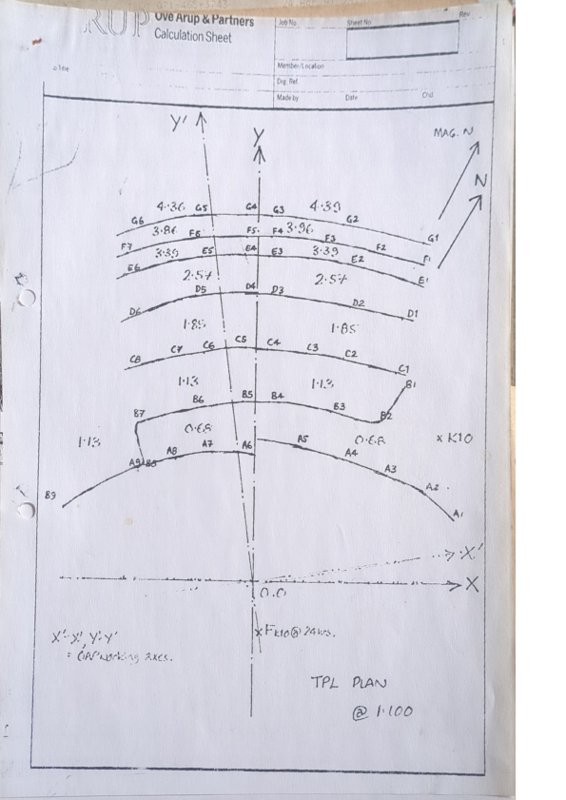 RUP
Ove Arup & Partners
Calculation Sheet
Job No
Sheet No
Rev
Member/Location
Drg. Ref.
Made by
Date
Chd
Y'
Y
MAG. N
N
4.36
4.39
G6
G5
G4
G3
G2
G1
3.86
3.96
F7
F6
F5
F4
F3
F2
F1
3.39
3.39
E6
E5
E4
E3
E2
E1
2.57
2.57
D6
D5
D4
D3
D2
D1
1.85
1.85
C8
C7
C6
C5
C4
C3
C2
C1
1.13
1.13
B1
B7
B6
B5
B4
B3
B2
0.68
0.68
1.13
x K10
A9
B8
A8
A7
A6
A5
A4
A3
A2
A1
B9
X'
X
0.0
X'-X', Y'-Y'
TPL PLAN
@ 1:100